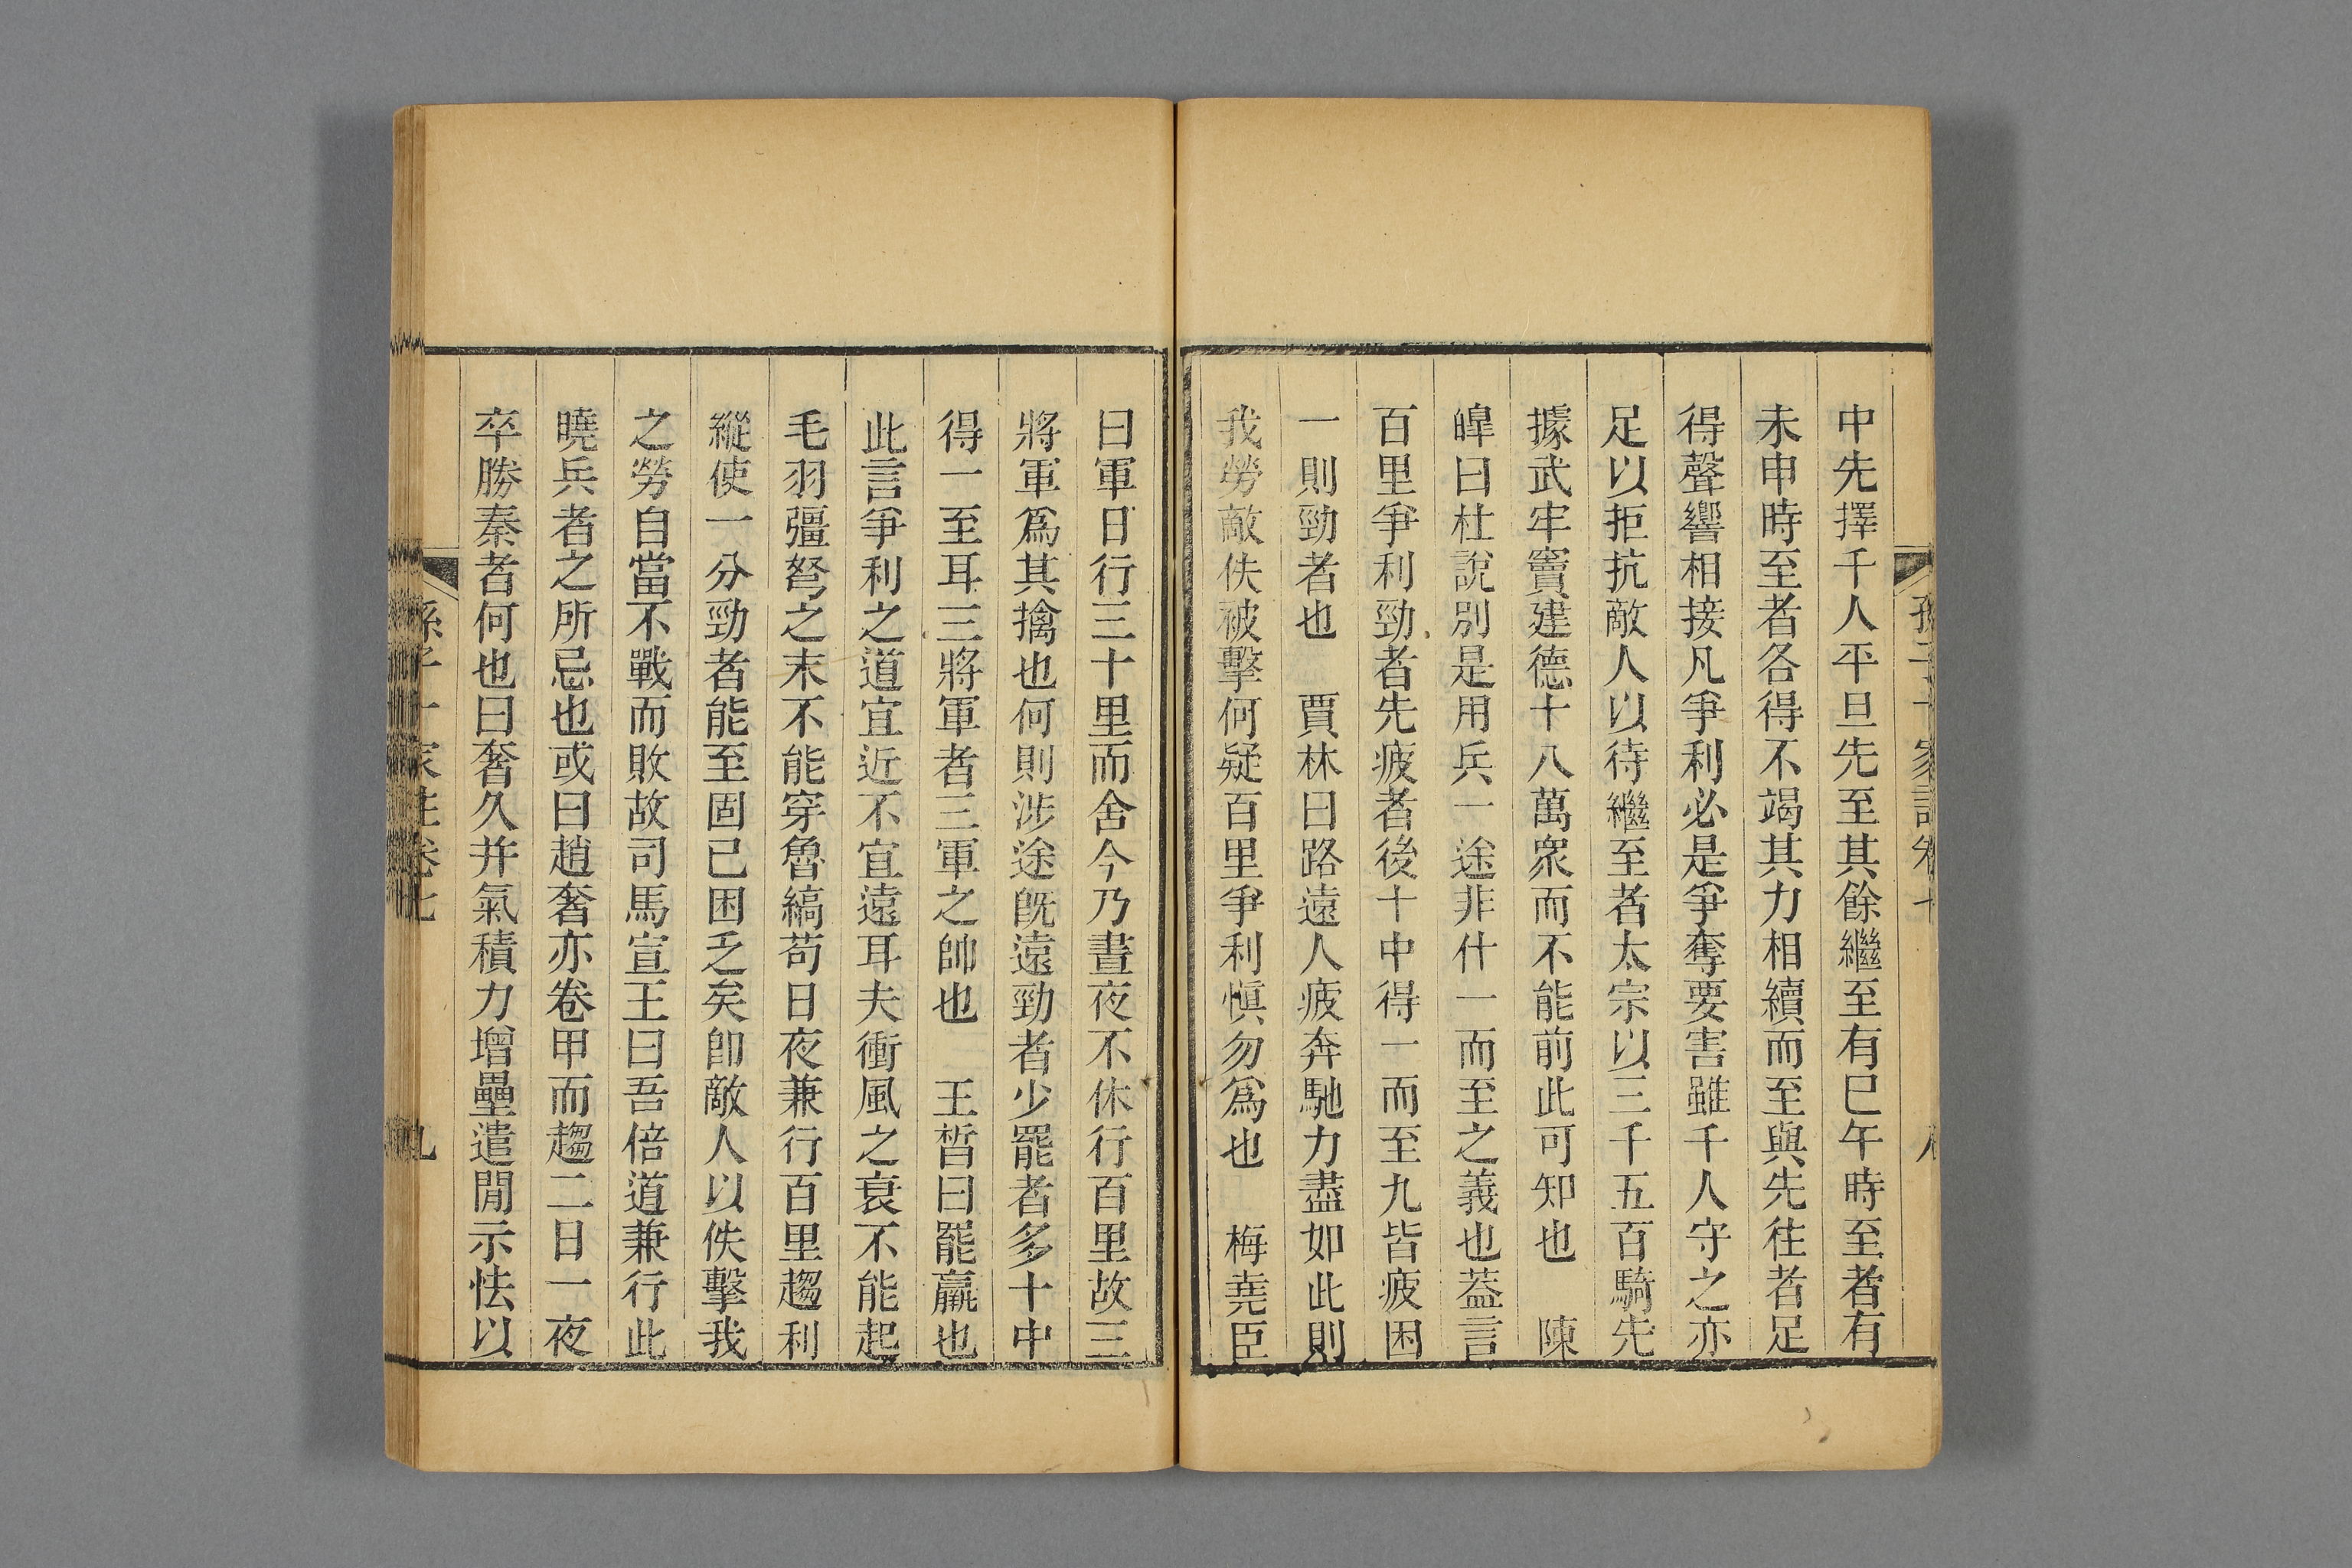 中先擇千人平旦先至其餘繼至有巳午時至者有
未申時至者各得不竭其力相續而至與先往者足
得聲響相接凡爭利必是爭奪要害雖千人守之亦
足以拒抗敵人以待繼至者太宗以三千五百騎先
據武牢竇建德十八萬衆而不能前此可知也　陳
皥曰杜說別是用兵一途非什一而至之義也蓋言
百里爭利勁者先疲者後十中得一而至九皆疲困
一則勁者也　賈林曰路遠人疲奔馳力盡如此則
我勞敵佚被擊何疑百里爭利愼勿爲也　梅堯臣
曰軍日行三十里而舍今乃晝夜不休行百里故三
將軍爲其擒也何則涉途旣遠勁者少罷者多十中
得一至耳三將軍者三軍之帥也　王晳曰罷羸也
此言爭利之道宜近不宜遠耳夫衝風之衰不能起
毛羽彊弩之末不能穿魯縞苟日夜兼行百里趨利
縱使一分勁者能至固已困乏矣卽敵人以佚擊我
之勞自當不戰而敗故司馬宣王曰吾倍道兼行此
曉兵者之所忌也或曰趙奢亦卷甲而趨二日一夜
卒勝秦者何也曰奢久幷氣積力增壘遣閒示怯以
孫子十家註卷七　九